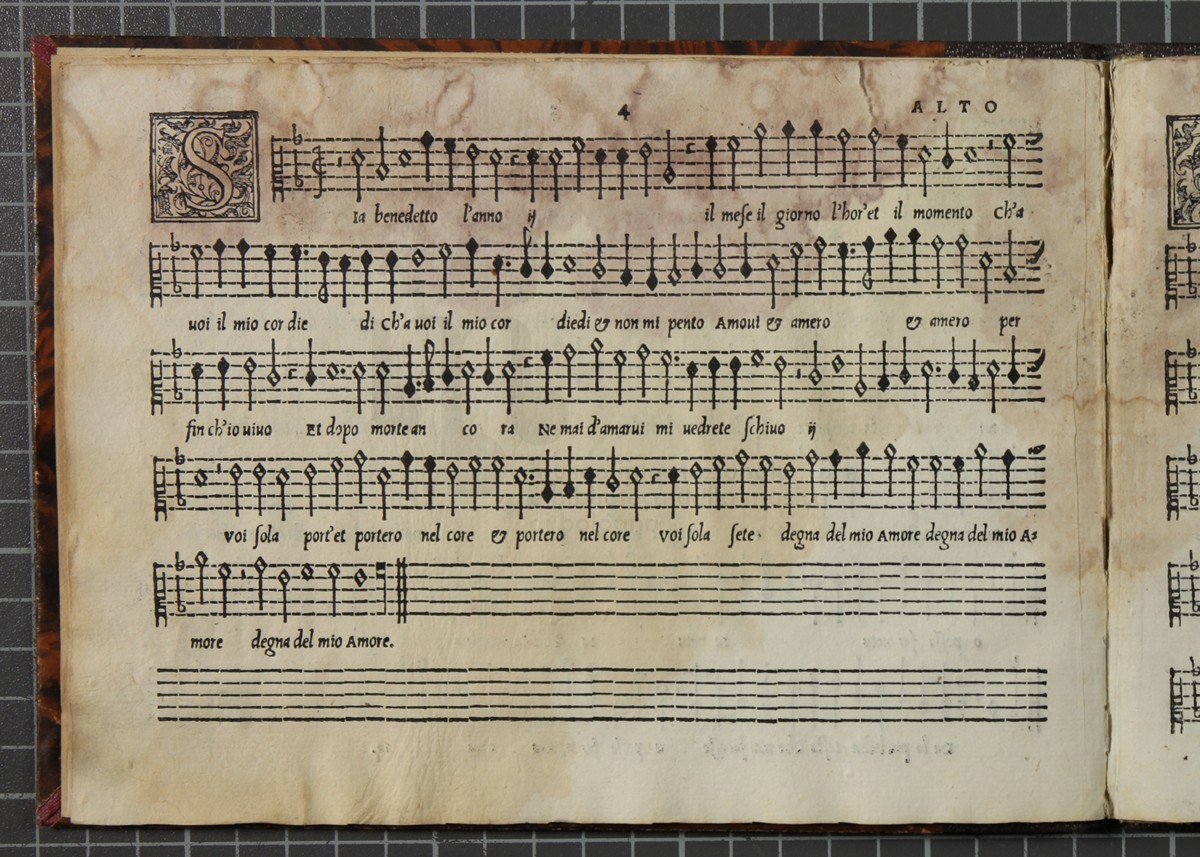 4 ALTO
SIa benedetto l'anno ij il mese il giorno l'hor'et il momento Ch'a
uoi il mio cor die di Ch'a uoi il mio cor diedi & non mi pento Amoui & amero & amero per
fin ch'io uiuo Et dopo morte an co ra Ne mai d'amarui mi uedrete schiuo ij
voi sola port'et portero nel core & portero nel core voi sola sete degna del mio Amore degna del mio A-
more degna del mio Amore.